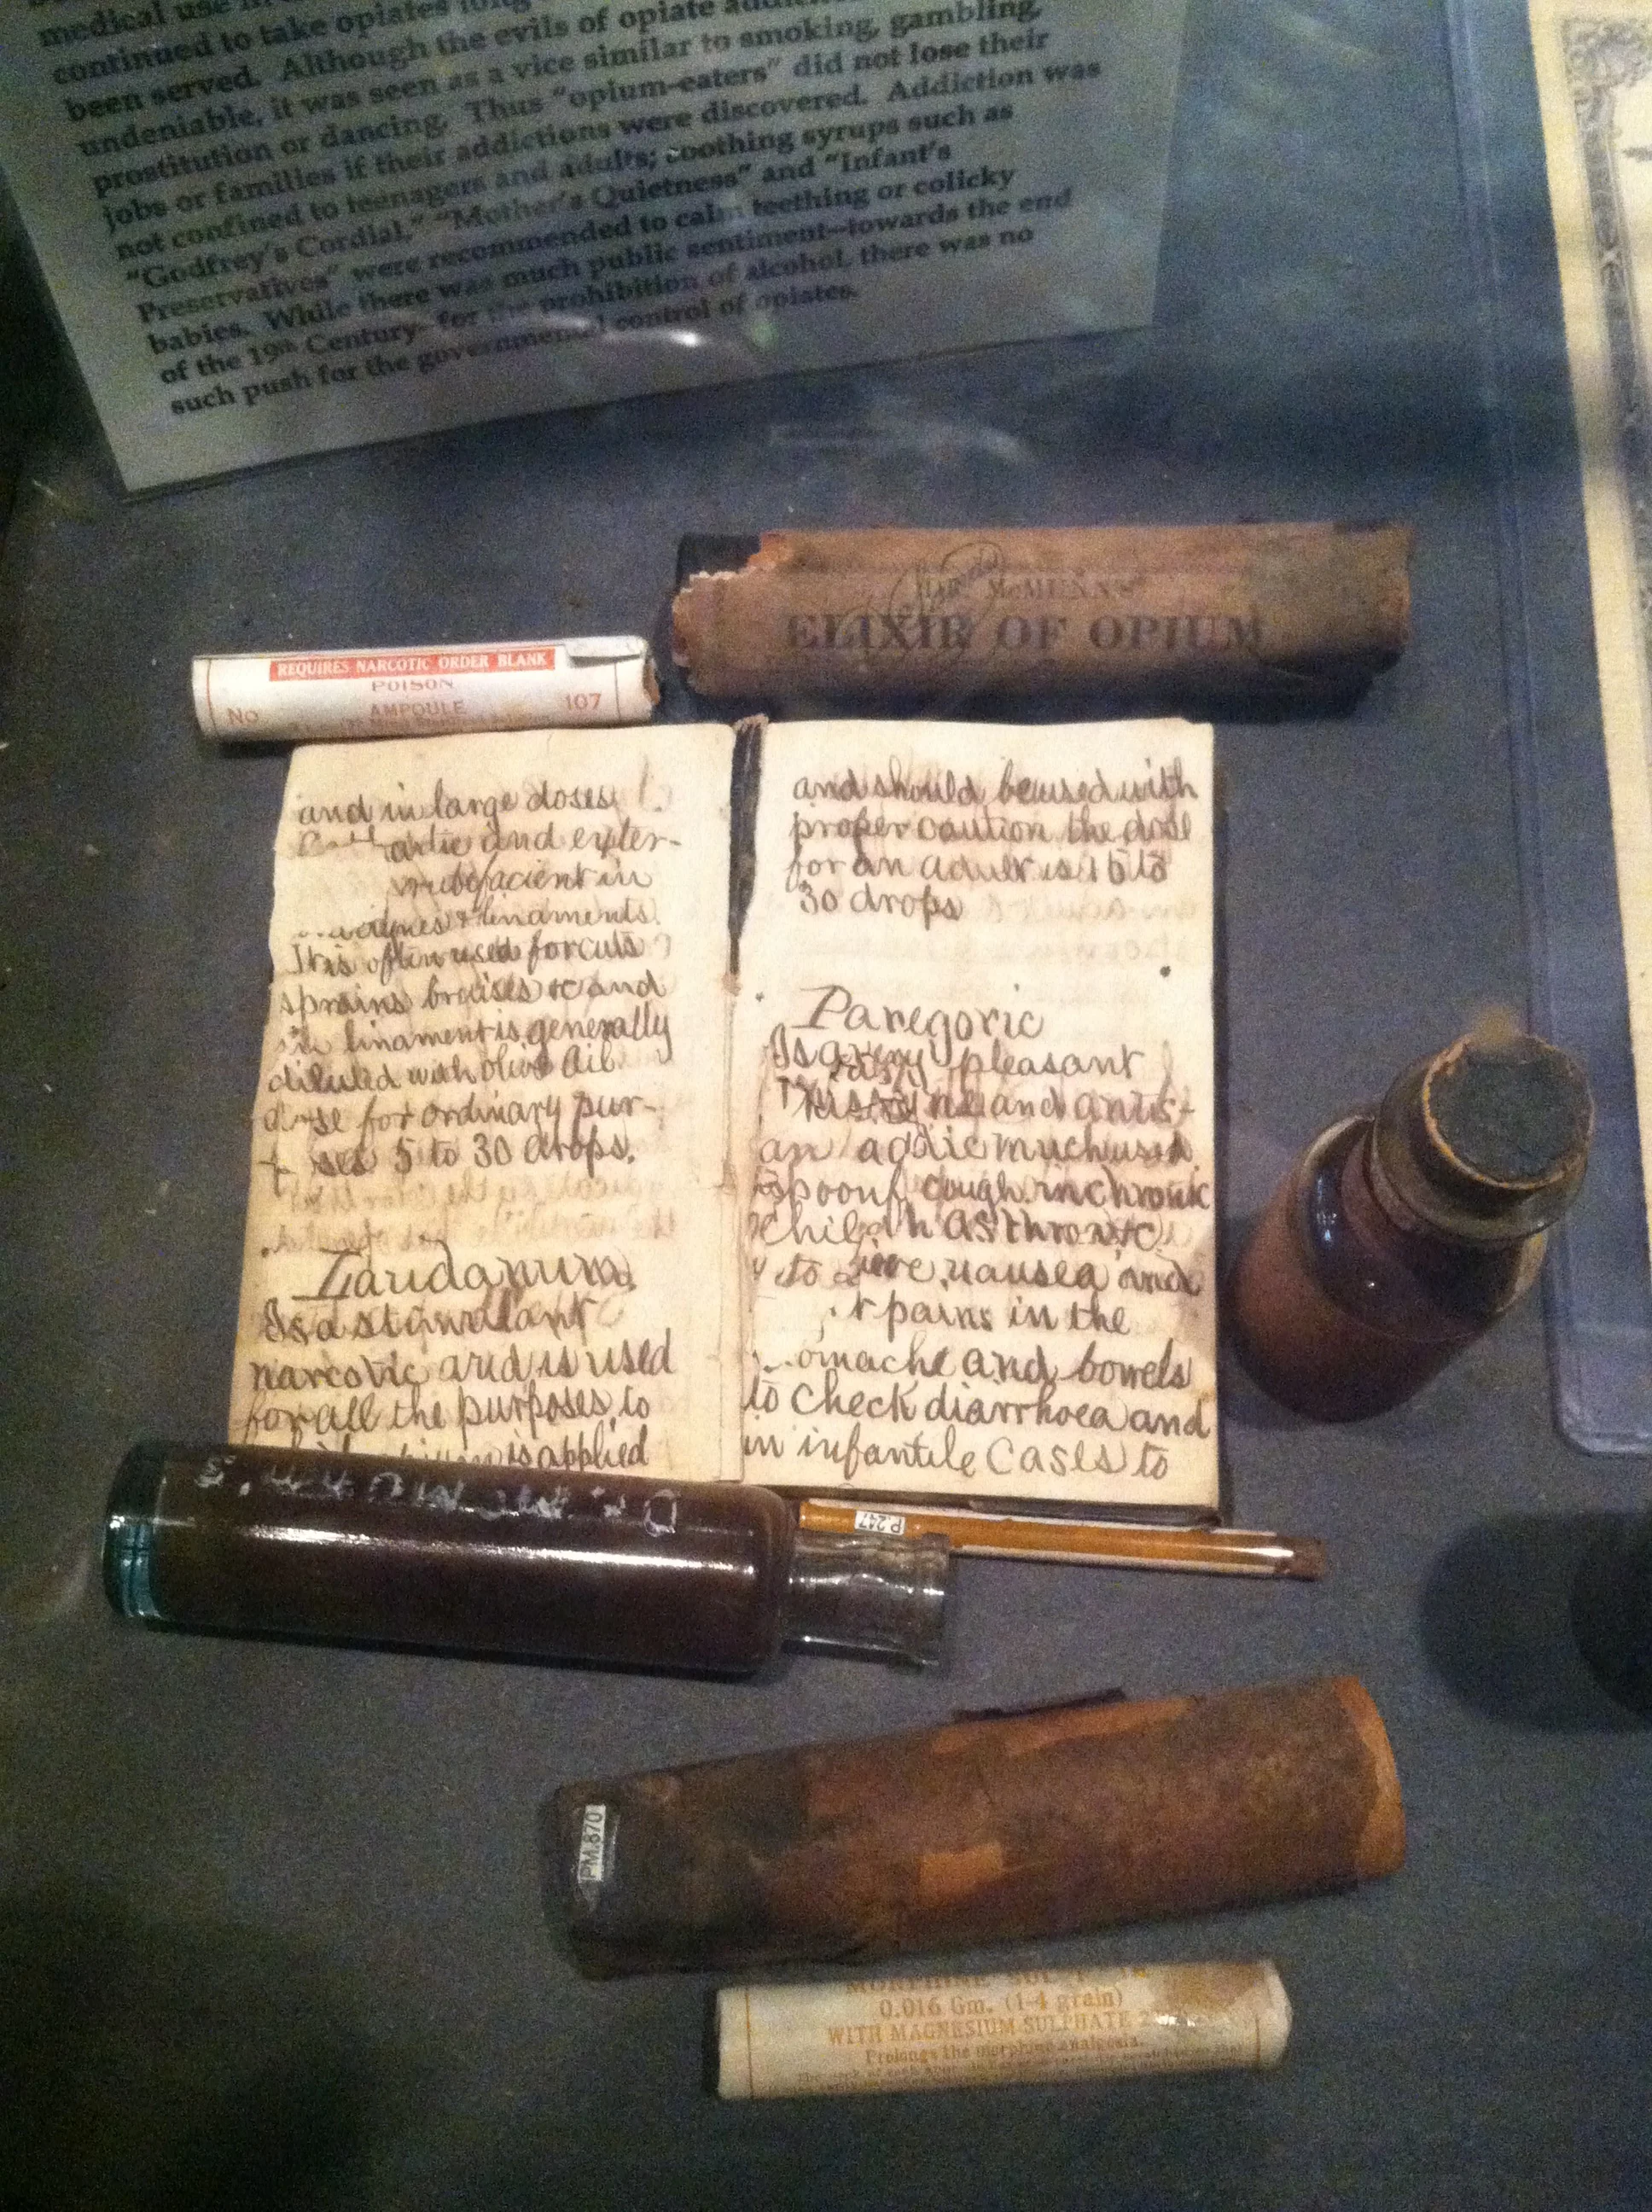 medical use in
continued to take opiates long
been served. Although the evils of opiate
undeniable, it was seen as a vice similar to smoking, gambling,
prostitution or dancing. Thus "opium-eaters" did not lose their
jobs or families if their addictions were discovered. Addiction was
not confined to teenagers and adults; soothing syrups such as
"Godfrey's Cordial," "Mother's Quietness" and "Infant's
Preservatives" were recommended to calm teething or colicky
babies. While there was much public sentiment—towards the end
of the 19th Century– for the prohibition of alcohol, there was no
such push for the governmental control of opiates.
McMUNN'S
ELIXIR OF OPIUM
REQUIRES NARCOTIC ORDER BLANK
POISON
No AMPOULE 107
and in large doses
and exter-
rubefacient in
& linaments.
It is often used for cuts
sprains bruises &c and
linament is generally
diluted with Olive Oil.
for ordinary pur-
5 to 30 drops.
Laudanum.
Is a stimulant
narcotic and is used
for all the purposes to
is applied
and should be used with
proper caution the dose
for an adult is 15 to
30 drops
Paregoric
Is a very pleasant
and
an much used
cough in chronic
to nausea and
pains in the
and bowels
to check diarrhoea and
in infantile cases to
P.247
PM.870
MORPHINE
0.016 Gm. (1-4 grain)
WITH MAGNESIUM SULPHATE 2
Prolongs the morphine analgesia.